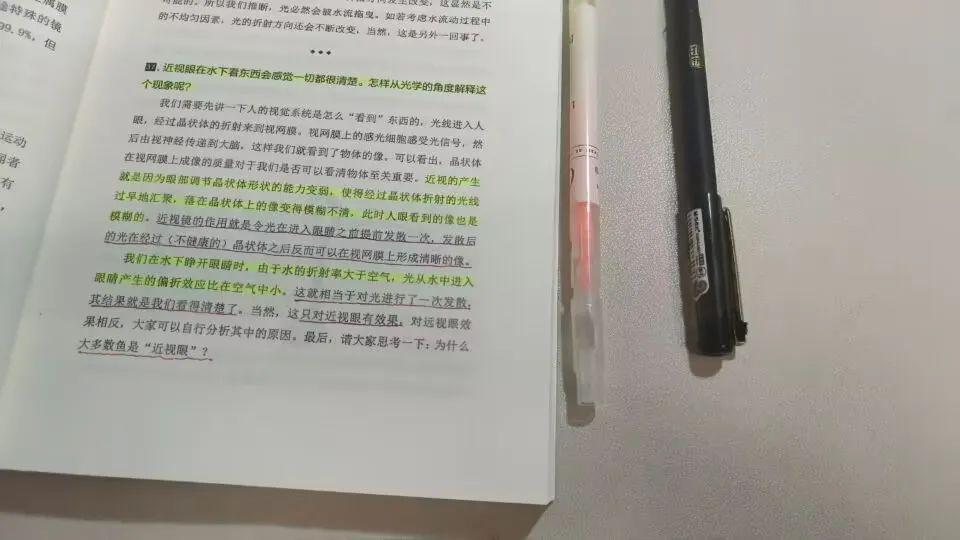 属膜
途特殊的镜
99.9%，但
运动
有
能的。所以我们推断，光必然会被水流拖曳。如若考虑水流动过程中
的不均匀因素，光的折射方向还会不断改变，当然，这是另外一回事了。
17. 近视眼在水下看东西会感觉一切都很清楚。怎样从光学的角度解释这
个现象呢？
我们需要先讲一下人的视觉系统是怎么“看到”东西的，光线进入人
眼，经过晶状体的折射来到视网膜。视网膜上的感光细胞感受光信号，然
后由视神经传递到大脑。这样我们就看到了物体的像。可以看出，晶状体
在视网膜上成像的质量对于我们是否可以看清物体至关重要。近视的产生
就是因为眼部调节晶状体形状的能力变弱，使得经过晶状体折射的光线
过早地汇聚，落在晶状体上的像变得模糊不清，此时人眼看到的像也是
模糊的。近视镜的作用就是令光在进入眼睛之前提前发散一次，发散后
的光在经过（不健康的）晶状体之后反而可以在视网膜上形成清晰的像。
我们在水下睁开眼睛时，由于水的折射率大于空气，光从水中进入
眼睛产生的偏折效应比在空气中小。这就相当于对光进行了一次发散，
其结果就是我们看得清楚了。当然，这只对近视眼有效果，对远视眼效
果相反，大家可以自行分析其中的原因。最后，请大家思考一下：为什么
大多数鱼是“近视眼”？